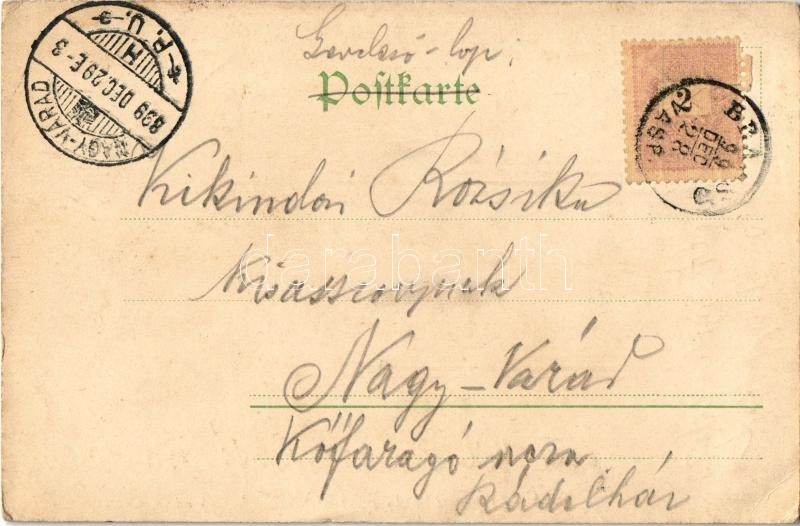 Levelező-lap.
Postkarte
NAGY-VÁRAD
899 DEC. 29 E-3
P. U. H
2
VASP.
DEC
28
Kikindai Rózsika
Kisasszonynak
Nagy-Várad
Kőfaragó
darabanth